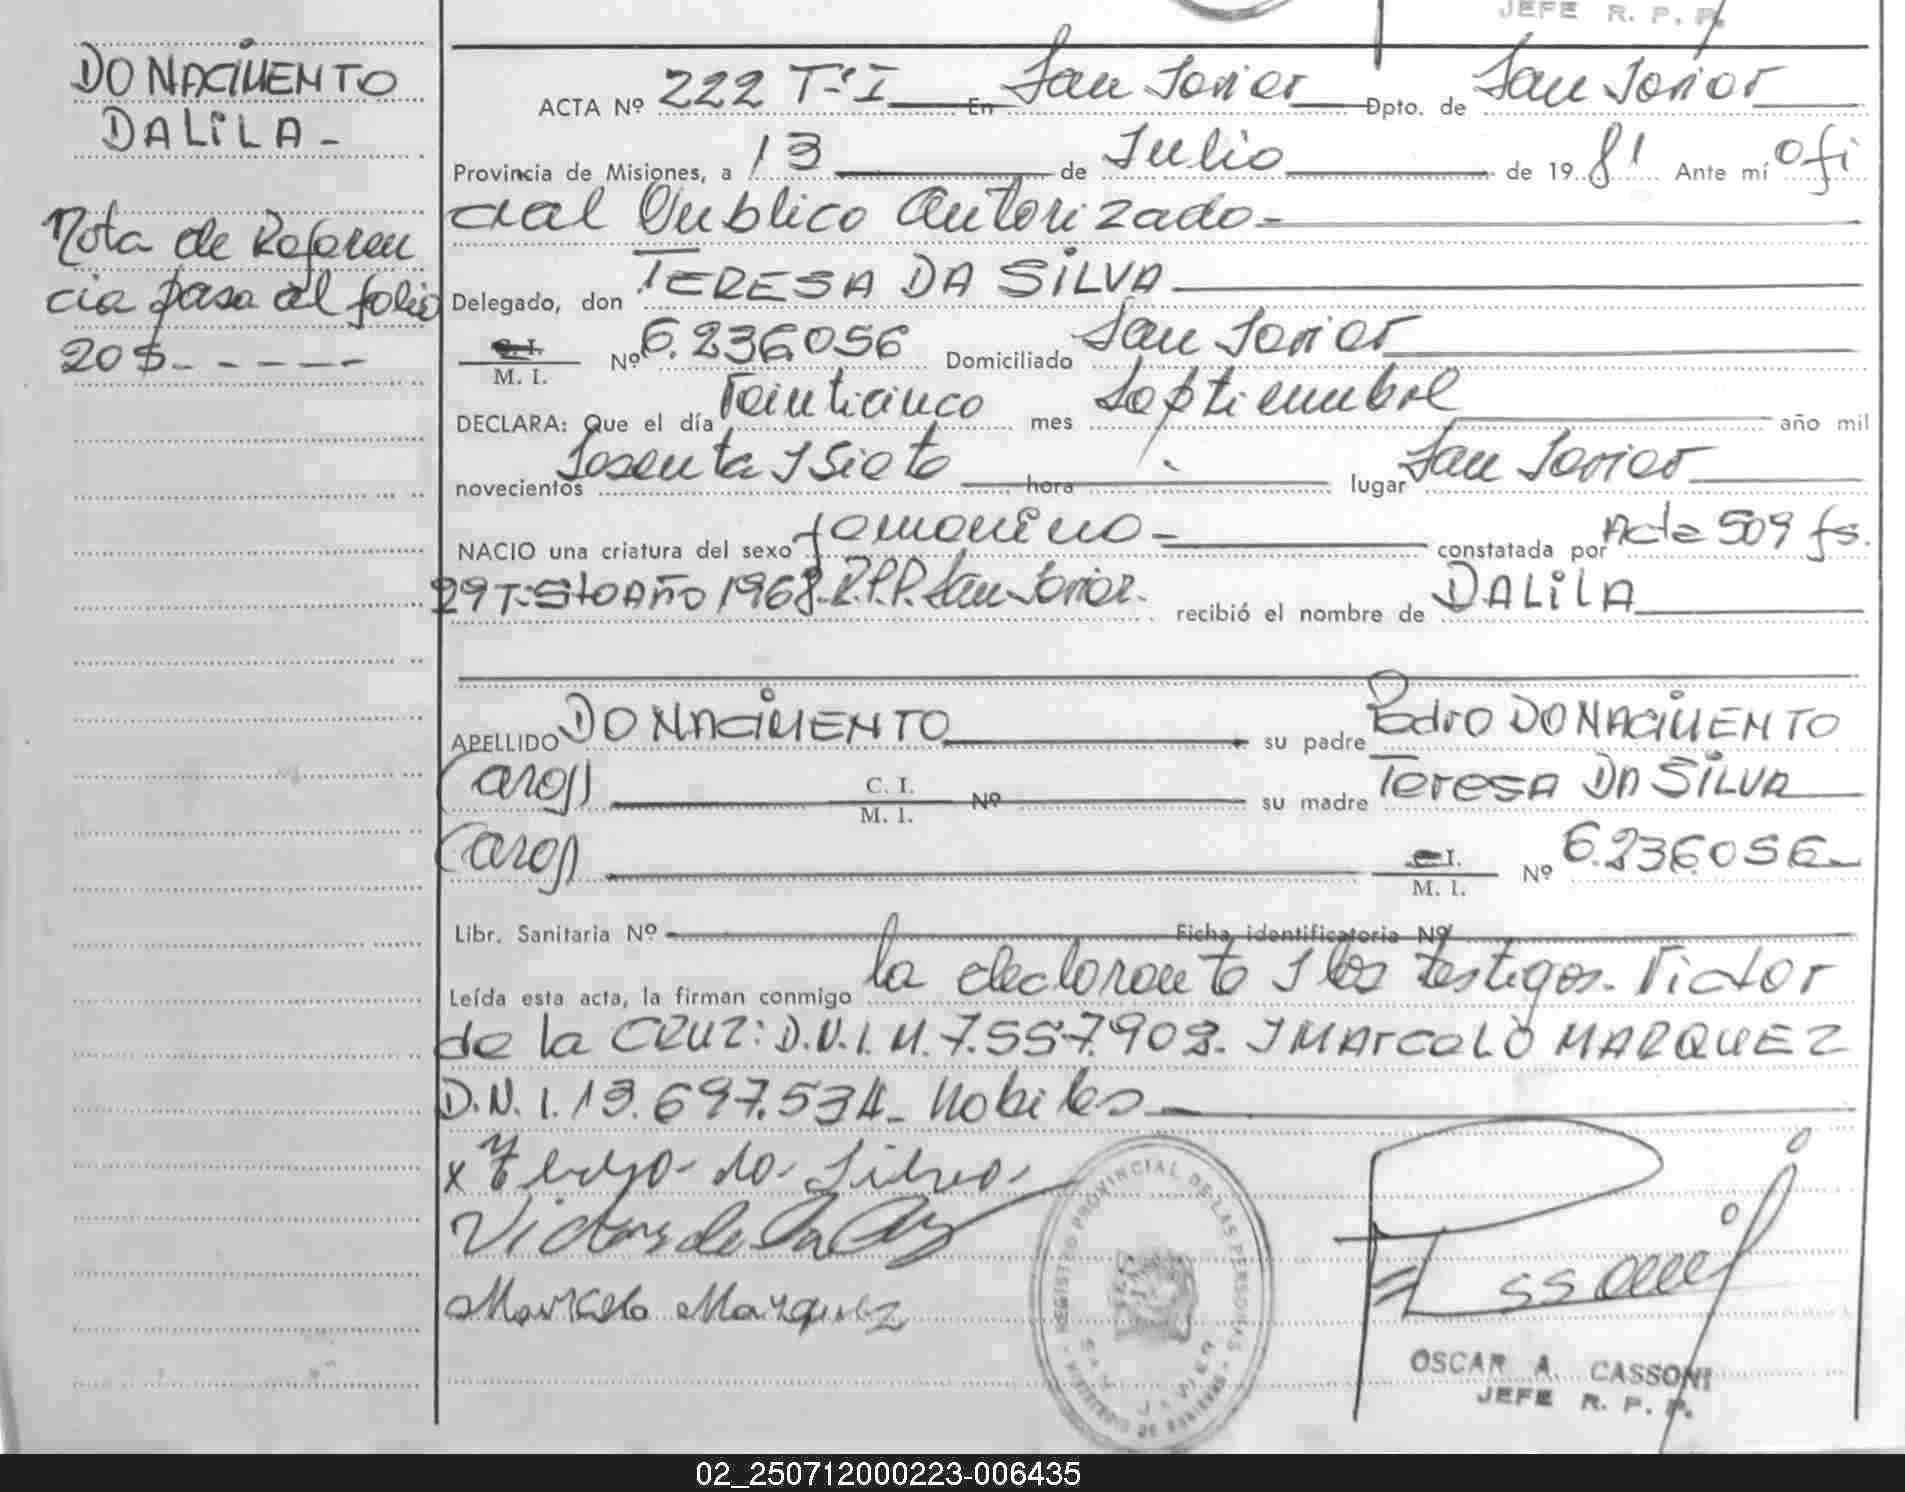 JEFE R. P. P.
DO NACIMENTO
DALILA -
Nota de Referen
cia pasa al folio
20$ - - - - -
ACTA Nº 222 T-I En San Javier Dpto. de San Javier
Provincia de Misiones, a 13 de Julio de 1981 Ante mí Ofi
cial Publico Autorizado -
Delegado, don TERESA DA SILVA
C. I. / M. I. Nº 6.236.056 Domiciliado San Javier
DECLARA: Que el día Veinticinco mes Septiembre año mil
novecientos Sesenta y Siete hora lugar San Javier
NACIO una criatura del sexo femenino - constatada por Acta 509 fs.
29 T: 5to AÑO 1968. R.P.P. San Javier. recibió el nombre de DALILA
APELLIDO DO NACIMENTO su padre Pedro DO NACIMENTO
(arg) C. I. / M. I. Nº su madre Teresa DA SILVA
(arg) C. I. / M. I. Nº 6.236.056 -
Libr. Sanitaria Nº Ficha identificatoria Nº
Leída esta acta, la firman conmigo la declarante y los testigos. Victor
de la CRUZ: D.N.I. M. 7.557.903. y MARCELO MARQUEZ
D.N.I. 13.697.534 - Habiles
x da Silva
Victor de la Cruz
Marcelo Marquez
REGISTRO PROVINCIAL DE LAS PERSONAS
SAN JAVIER
MINISTERIO DE GOBIERNO
OSCAR A. CASSONI
JEFE R. P. P.
02_250712000223-006435